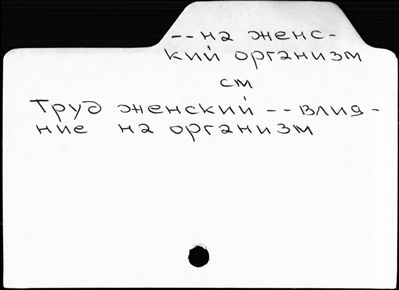 -- на женс-
кий организм
см
Труд женский -- влия-
ние на организм